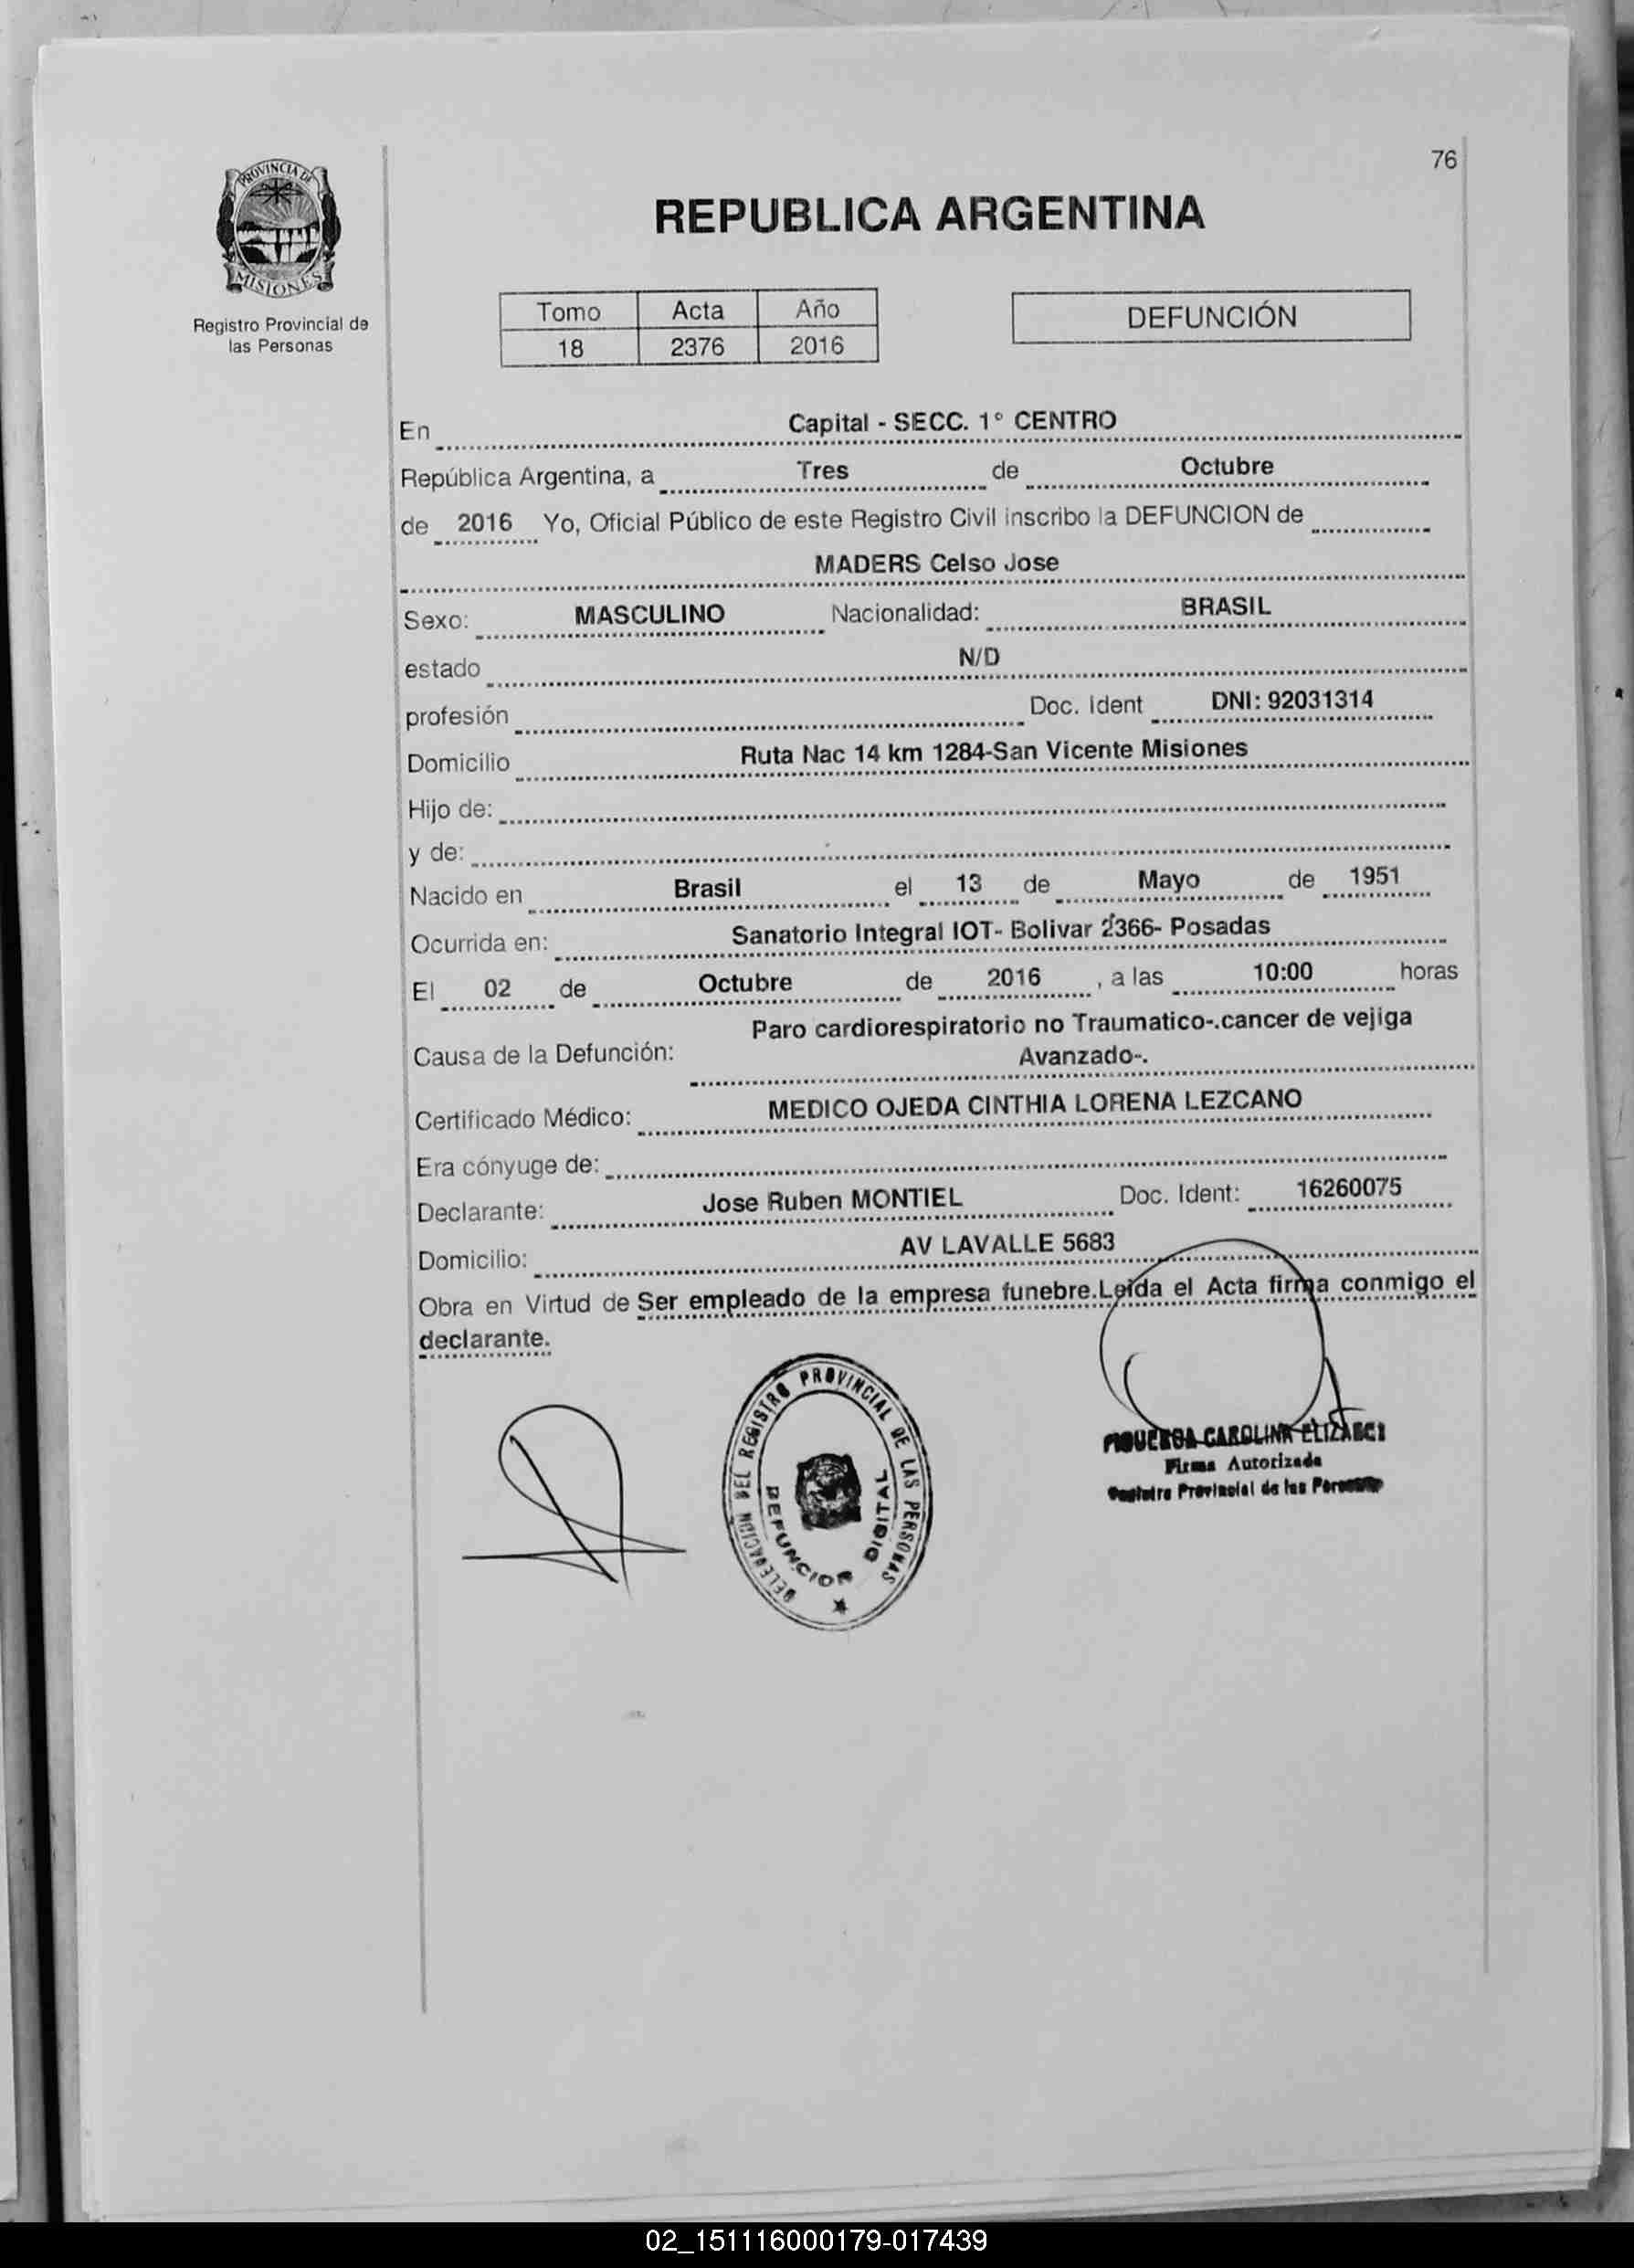 76
PROVINCIA DE
MISIONES
Registro Provincial de
las Personas
REPUBLICA ARGENTINA
Tomo Acta Año
18 2376 2016
DEFUNCIÓN
En Capital - SECC. 1° CENTRO
República Argentina, a Tres de Octubre
de 2016 Yo, Oficial Público de este Registro Civil inscribo la DEFUNCION de
MADERS Celso Jose
Sexo: MASCULINO Nacionalidad: BRASIL
estado N/D
profesión Doc. Ident DNI: 92031314
Domicilio Ruta Nac 14 km 1284-San Vicente Misiones
Hijo de:
y de:
Nacido en Brasil el 13 de Mayo de 1951
Ocurrida en: Sanatorio Integral IOT- Bolivar 2366- Posadas
El 02 de Octubre de 2016 , a las 10:00 horas
Causa de la Defunción: Paro cardiorespiratorio no Traumatico-.cancer de vejiga
Avanzado-.
Certificado Médico: MEDICO OJEDA CINTHIA LORENA LEZCANO
Era cónyuge de:
Declarante: Jose Ruben MONTIEL Doc. Ident: 16260075
Domicilio: AV LAVALLE 5683
Obra en Virtud de Ser empleado de la empresa funebre.Leída el Acta firma conmigo el
declarante.
DELEGACION DEL REGISTRO PROVINCIAL DE LAS PERSONAS
DEFUNCION DIGITAL
CAROLINA
Firma Autorizada
Provincial de las
02_151116000179-017439